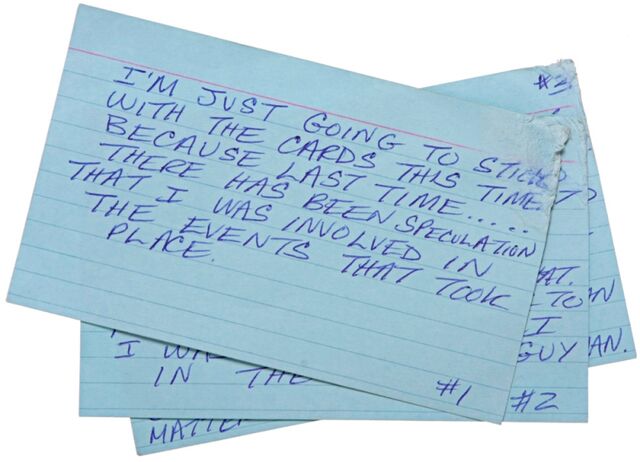 I'M JUST GOING TO STICK
WITH THE CARDS THIS TIME
BECAUSE LAST TIME.....
THERE HAS BEEN SPECULATION
THAT I WAS INVOLVED IN
THE EVENTS THAT TOOK
PLACE.
#1
I
IN THE
GUY
#2
#3